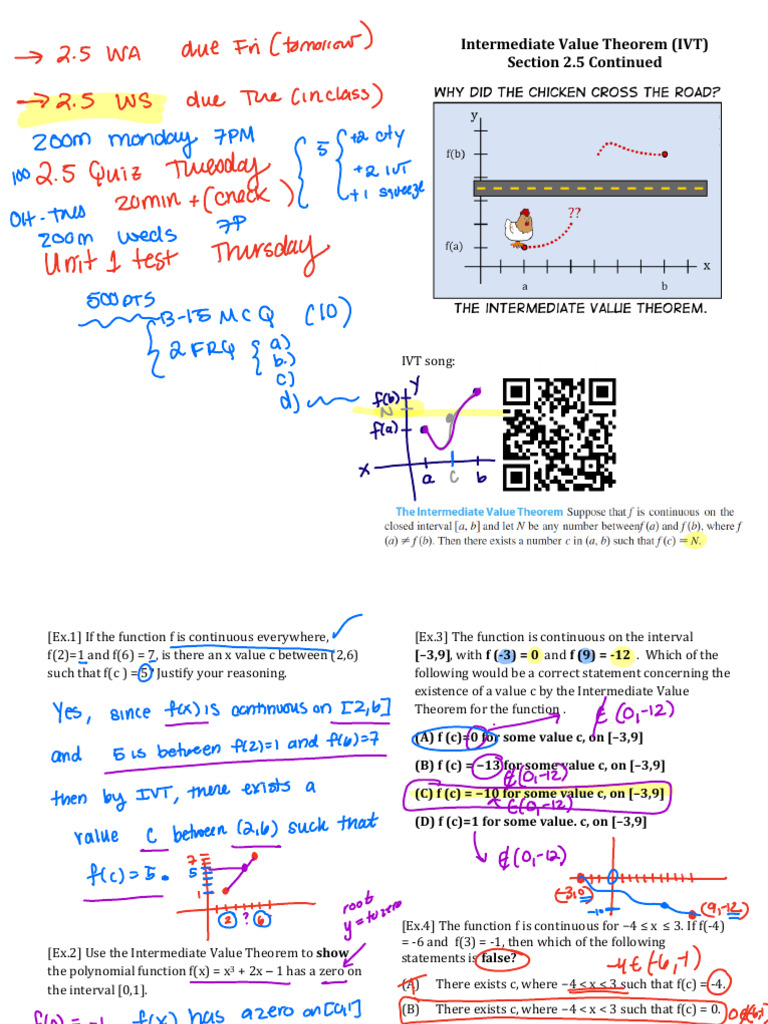 → 2.5 WA due Fri (tomorrow)
→ 2.5 WS due Tue (in class)
zoom monday 7PM
100 2.5 Quiz Tuesday
20min + (check)
5 +2 cty
+2 IVT
+1 squeeze
OH - Tues
zoom weds 7P
Unit 1 test Thursday
500 PTS
13-15 MCQ (10)
2 FRQ a)
b.)
c)
d)
Intermediate Value Theorem (IVT)
Section 2.5 Continued
WHY DID THE CHICKEN CROSS THE ROAD?
y
f(b)
??
f(a)
x
a b
THE INTERMEDIATE VALUE THEOREM.
IVT song:
y
f(b)
N
f(a)
x
a c b
The Intermediate Value Theorem Suppose that f is continuous on the
closed interval [a, b] and let N be any number between f (a) and f (b), where f
(a) ≠ f (b). Then there exists a number c in (a, b) such that f (c) = N.
[Ex.1] If the function f is continuous everywhere,
f(2)=1 and f(6) = 7, is there an x value c between (2,6)
such that f(c ) = 5? Justify your reasoning.
Yes, since f(x) is continuous on [2,6]
and 5 is between f(2)=1 and f(6)=7
then by IVT, there exists a
value c between (2,6) such that
f(c)=5.
7
5
1
2 ? 6
root
y = to zero
[Ex.2] Use the Intermediate Value Theorem to show
the polynomial function f(x) = x³ + 2x − 1 has a zero on
the interval [0,1].
f(0) = -1 f(x) has a zero on [0,1]
[Ex.3] The function is continuous on the interval
[−3,9], with f (-3) = 0 and f (9) = -12 . Which of the
following would be a correct statement concerning the
existence of a value c by the Intermediate Value
Theorem for the function .
∉ (0,-12)
(A) f (c)=0 for some value c, on [−3,9]
(B) f (c) = −13 for some value c, on [−3,9]
∉(0,-12)
(C) f (c) = −10 for some value c, on [−3,9]
∈(0,-12)
(D) f (c)=1 for some value. c, on [−3,9]
∉(0,-12)
(-3,0)
-10
(9,-12)
[Ex.4] The function f is continuous for −4 ≤ x ≤ 3. If f(-4)
= -6 and f(3) = -1, then which of the following
statements is false?
-4 ∈ (-6,-1)
(A) There exists c, where −4 < x < 3 such that f(c) = -4.
(B) There exists c, where −4 < x < 3 such that f(c) = 0.